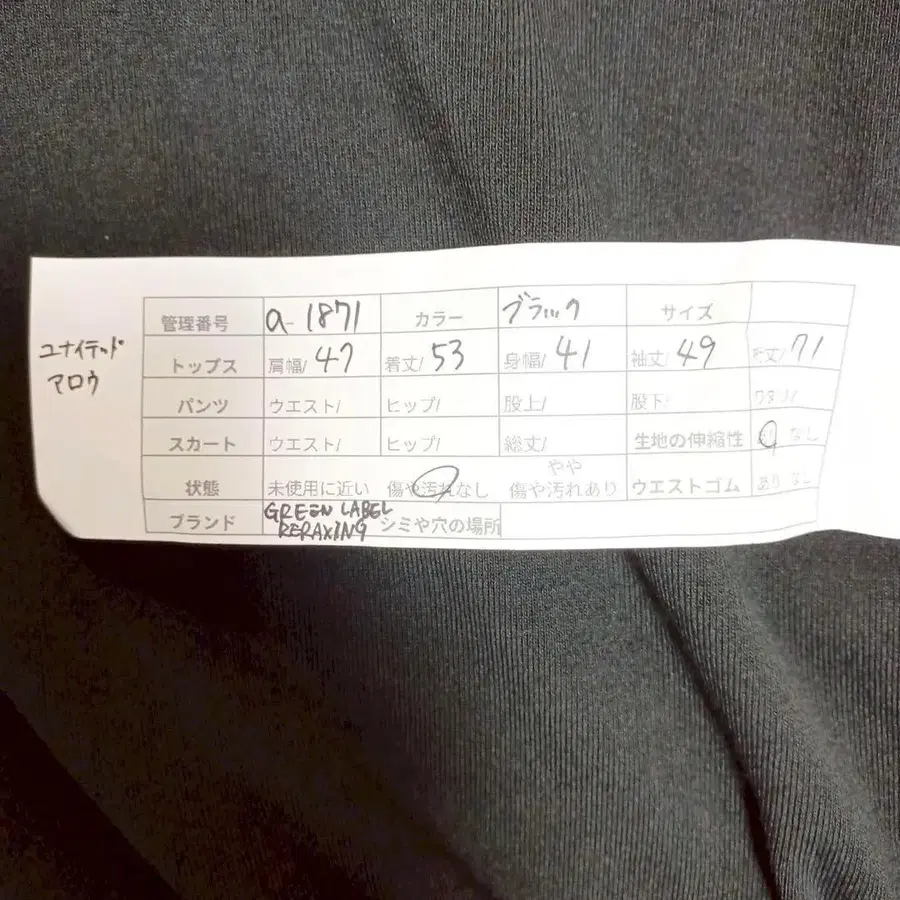 ユナイテッド
アロウ
管理番号 a-1871 カラー ブラック サイズ
トップス 肩幅/ 47 着丈/ 53 身幅/ 41 袖丈/ 49 裄丈/ 71
パンツ ウエスト/ ヒップ/ 股上/ 股下/ ワタリ/
スカート ウエスト/ ヒップ/ 総丈/ 生地の伸縮性 あり なし
状態 未使用に近い 傷や汚れなし やや 傷や汚れあり ウエストゴム あり なし
ブランド GREEN LABEL RERAXING シミや穴の場所